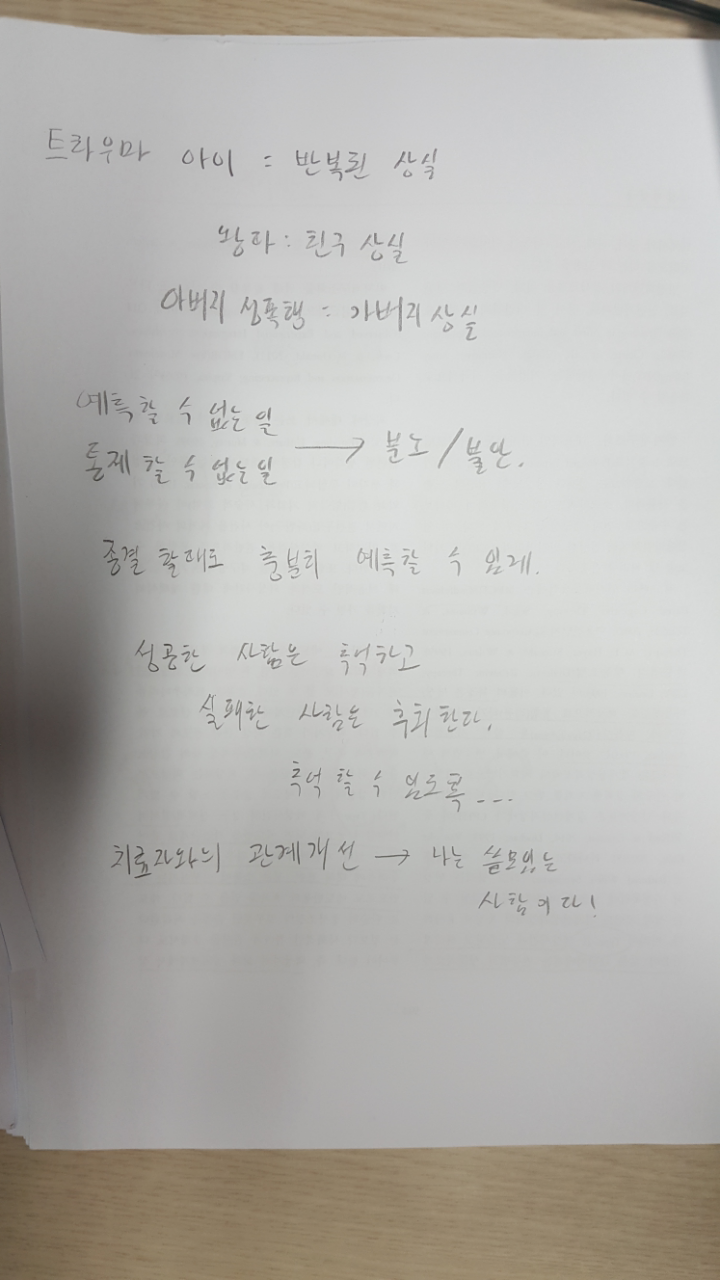 트라우마 아이 = 반복된 상실
왕따 : 친구 상실
아버지 성폭행 = 아버지 상실
예측할 수 없는 일
통제 할 수 없는 일 → 분노 / 불안.
종결 할때도 충분히 예측할 수 있게.
성공한 사람은 추억하고
실패한 사람은 후회한다.
추억 할 수 있도록...
치료자와의 관계개선 → 나는 쓸모있는
사람이다!